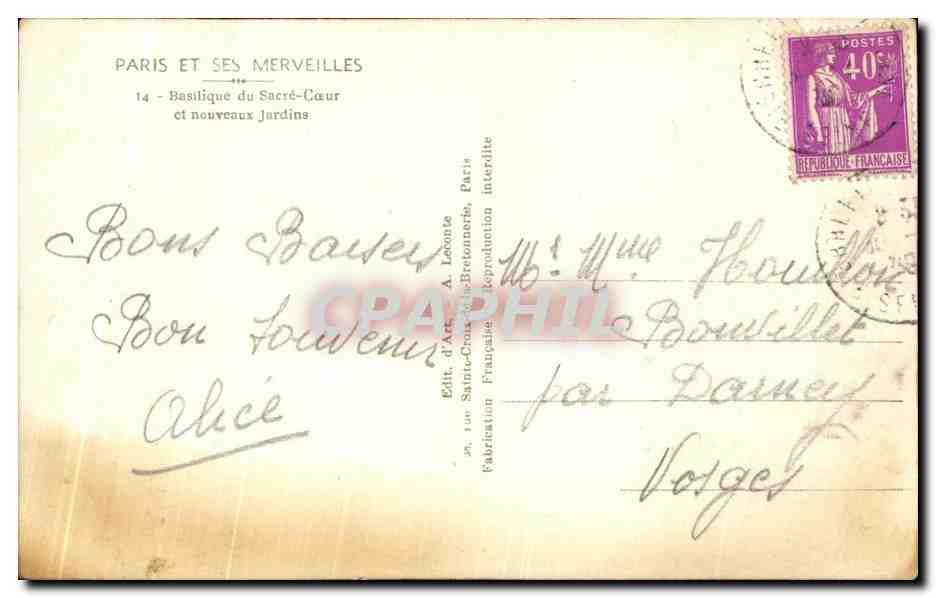 PARIS ET SES MERVEILLES
14 - Basilique du Sacré-Cœur
et nouveaux Jardins
Bons Baisers
Bon Souvenir
Alice
Edit. d'Art. A. Leconte
rue Sainte-Croix-de-la-Bretonnerie, Paris
Fabrication Française Reproduction interdite
POSTES
40c
REPUBLIQUE-FRANÇAISE
Mr Mme Houillon
Bonvillet
par Darney
Vosges
CPAPHIL